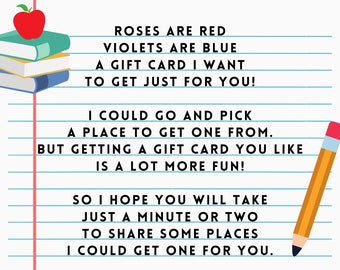 ROSES ARE RED
VIOLETS ARE BLUE
A GIFT CARD I WANT
TO GET JUST FOR YOU!
I COULD GO AND PICK
A PLACE TO GET ONE FROM.
BUT GETTING A GIFT CARD YOU LIKE
IS A LOT MORE FUN!
SO I HOPE YOU WILL TAKE
JUST A MINUTE OR TWO
TO SHARE SOME PLACES
I COULD GET ONE FOR YOU.